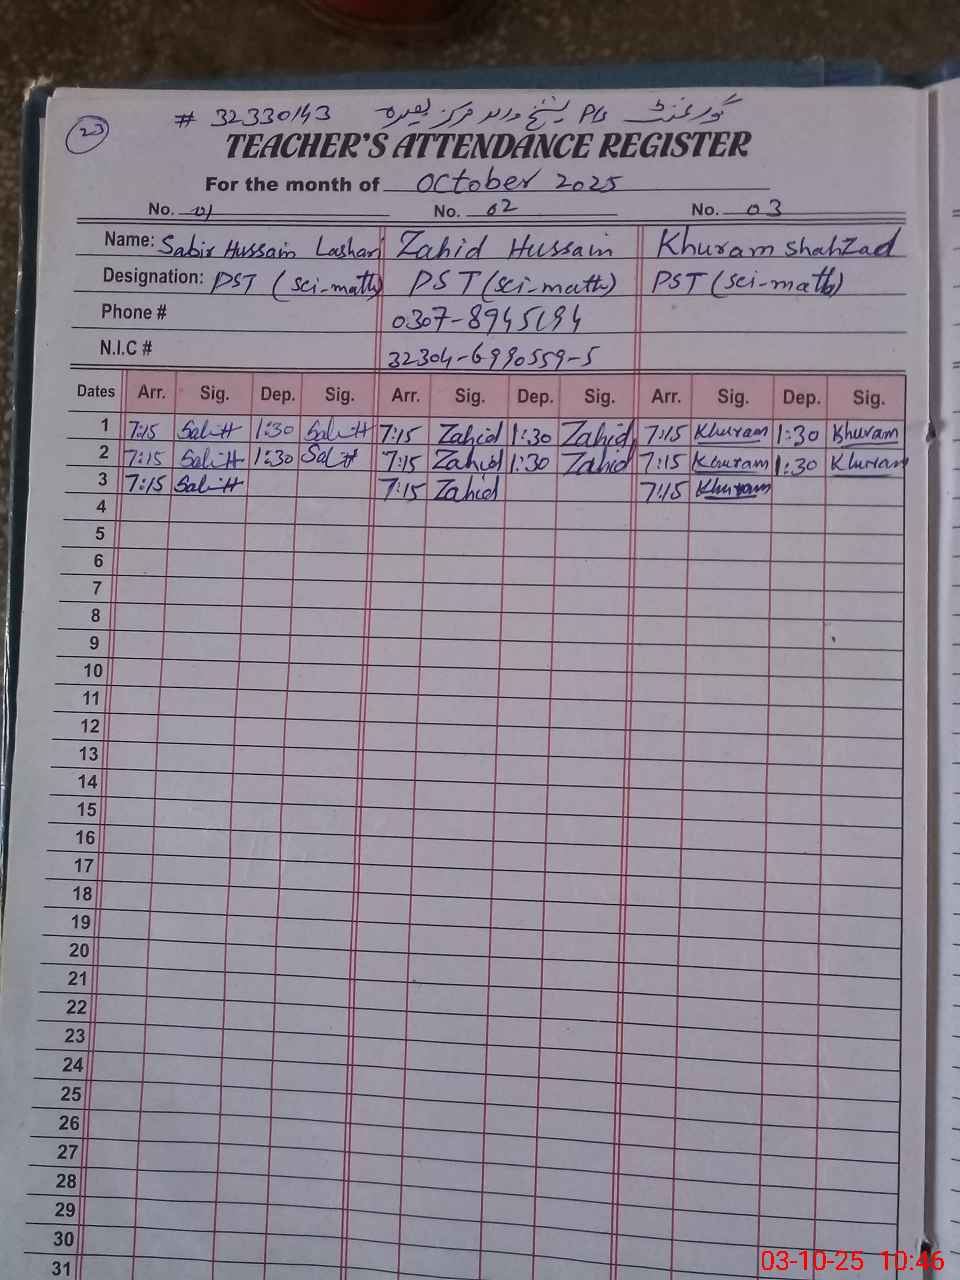 23 # 32330143 گورنمنٹ P/S شیخ والا مرکز
TEACHER'S ATTENDANCE REGISTER
For the month of October 2025
No. 01 No. 02 No. 03
Name: Sabir Hussain Lashari Zahid Hussain Khuram Shahzad
Designation: PST (sci-math) PST (sci-math) PST (sci-math)
Phone # 0307-8945194
N.I.C # 32304-6990559-5
Dates Arr. Sig. Dep. Sig. Arr. Sig. Dep. Sig. Arr. Sig. Dep. Sig.
1 7:15 1:30 7:15 Zahid 1:30 Zahid 7:15 Khuram 1:30 Khuram
2 7:15 1:30 7:15 Zahid 1:30 Zahid 7:15 Khuram 1:30 Khuram
3 7:15 7:15 Zahid 7:15 Khuram
4
5
6
7
8
9
10
11
12
13
14
15
16
17
18
19
20
21
22
23
24
25
26
27
28
29
30
31
03-10-25 10:46